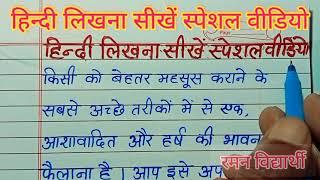 हिन्दी लिखना सीखें स्पेशल वीडियो
हिन्दी लिखना सीखें स्पेशल वीडियो
किसी को बेहतर महसूस कराने के
सबसे अच्छे तरीकों में से एक,
आशावादित और हर्ष की भावना
फैलाना है। आप इसे अप
रमन विद्यार्थी